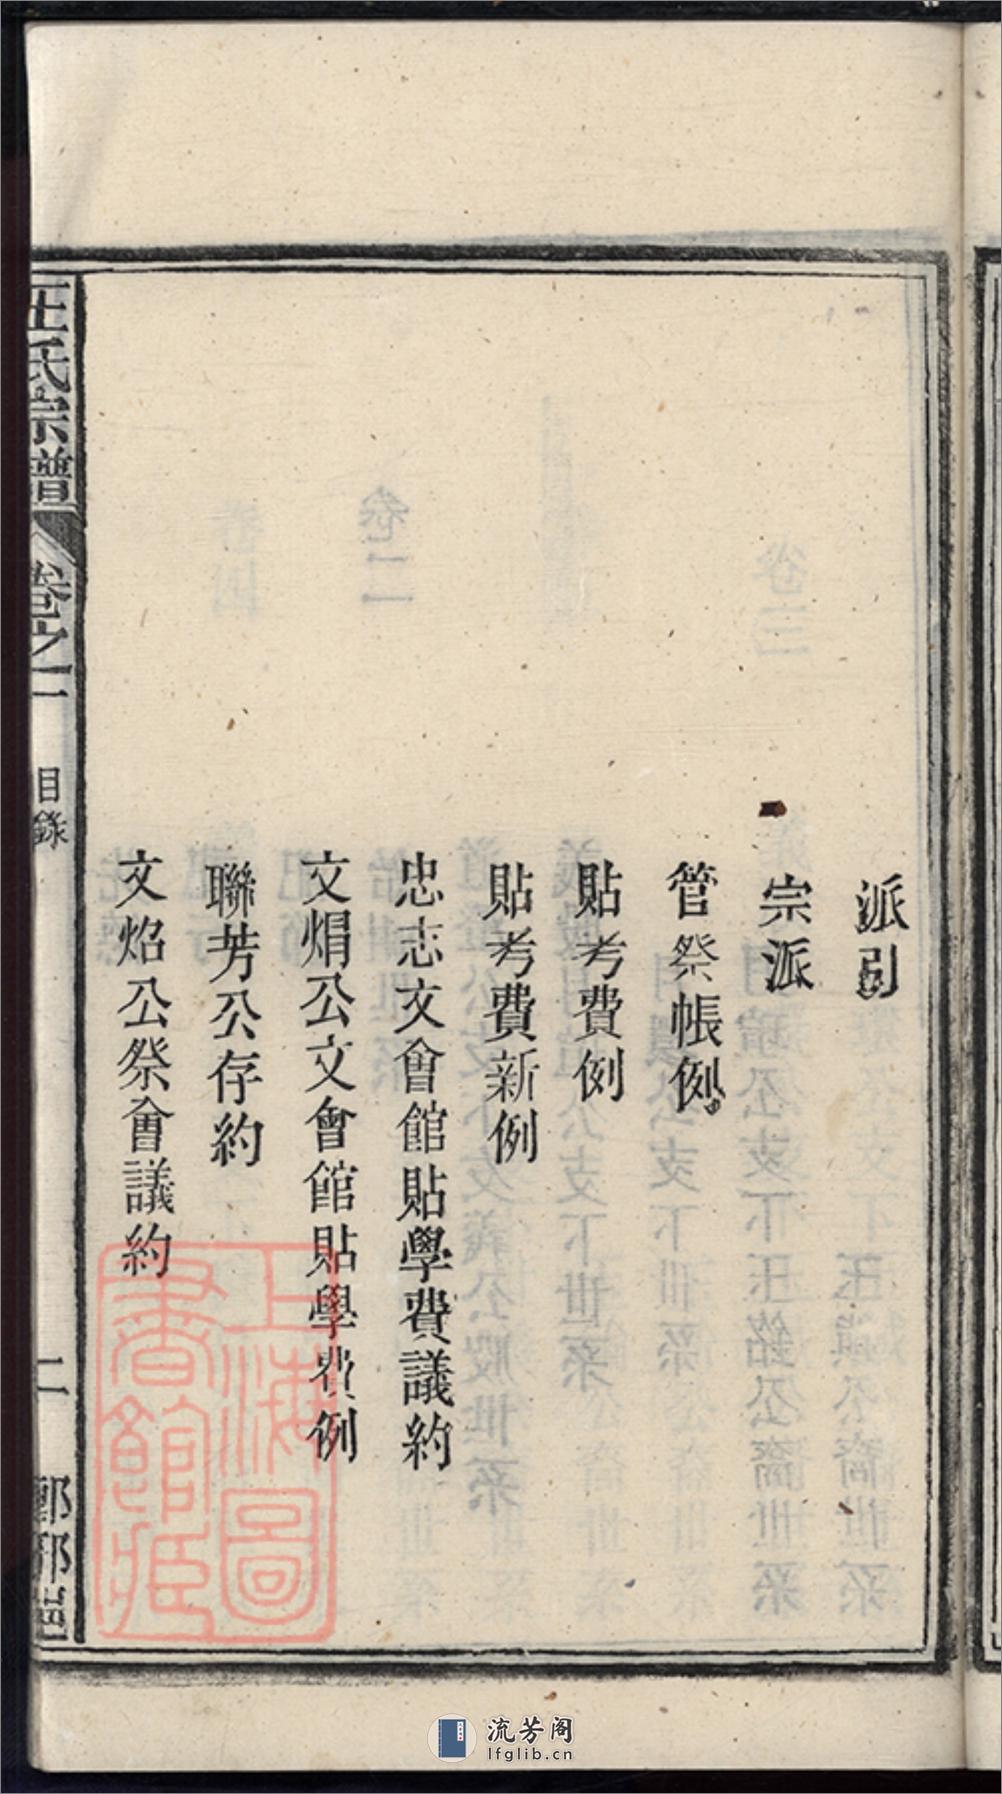 派引
宗派
管祭帳例
貼考費例
貼考費新例
忠志文會館貼學費議約
文焆公文會館貼學費例
聯芳公存約
文焰公祭會議約
王氏宗譜
卷之一
目錄
二
上海圖書館藏
流芳阁
lfglib.cn